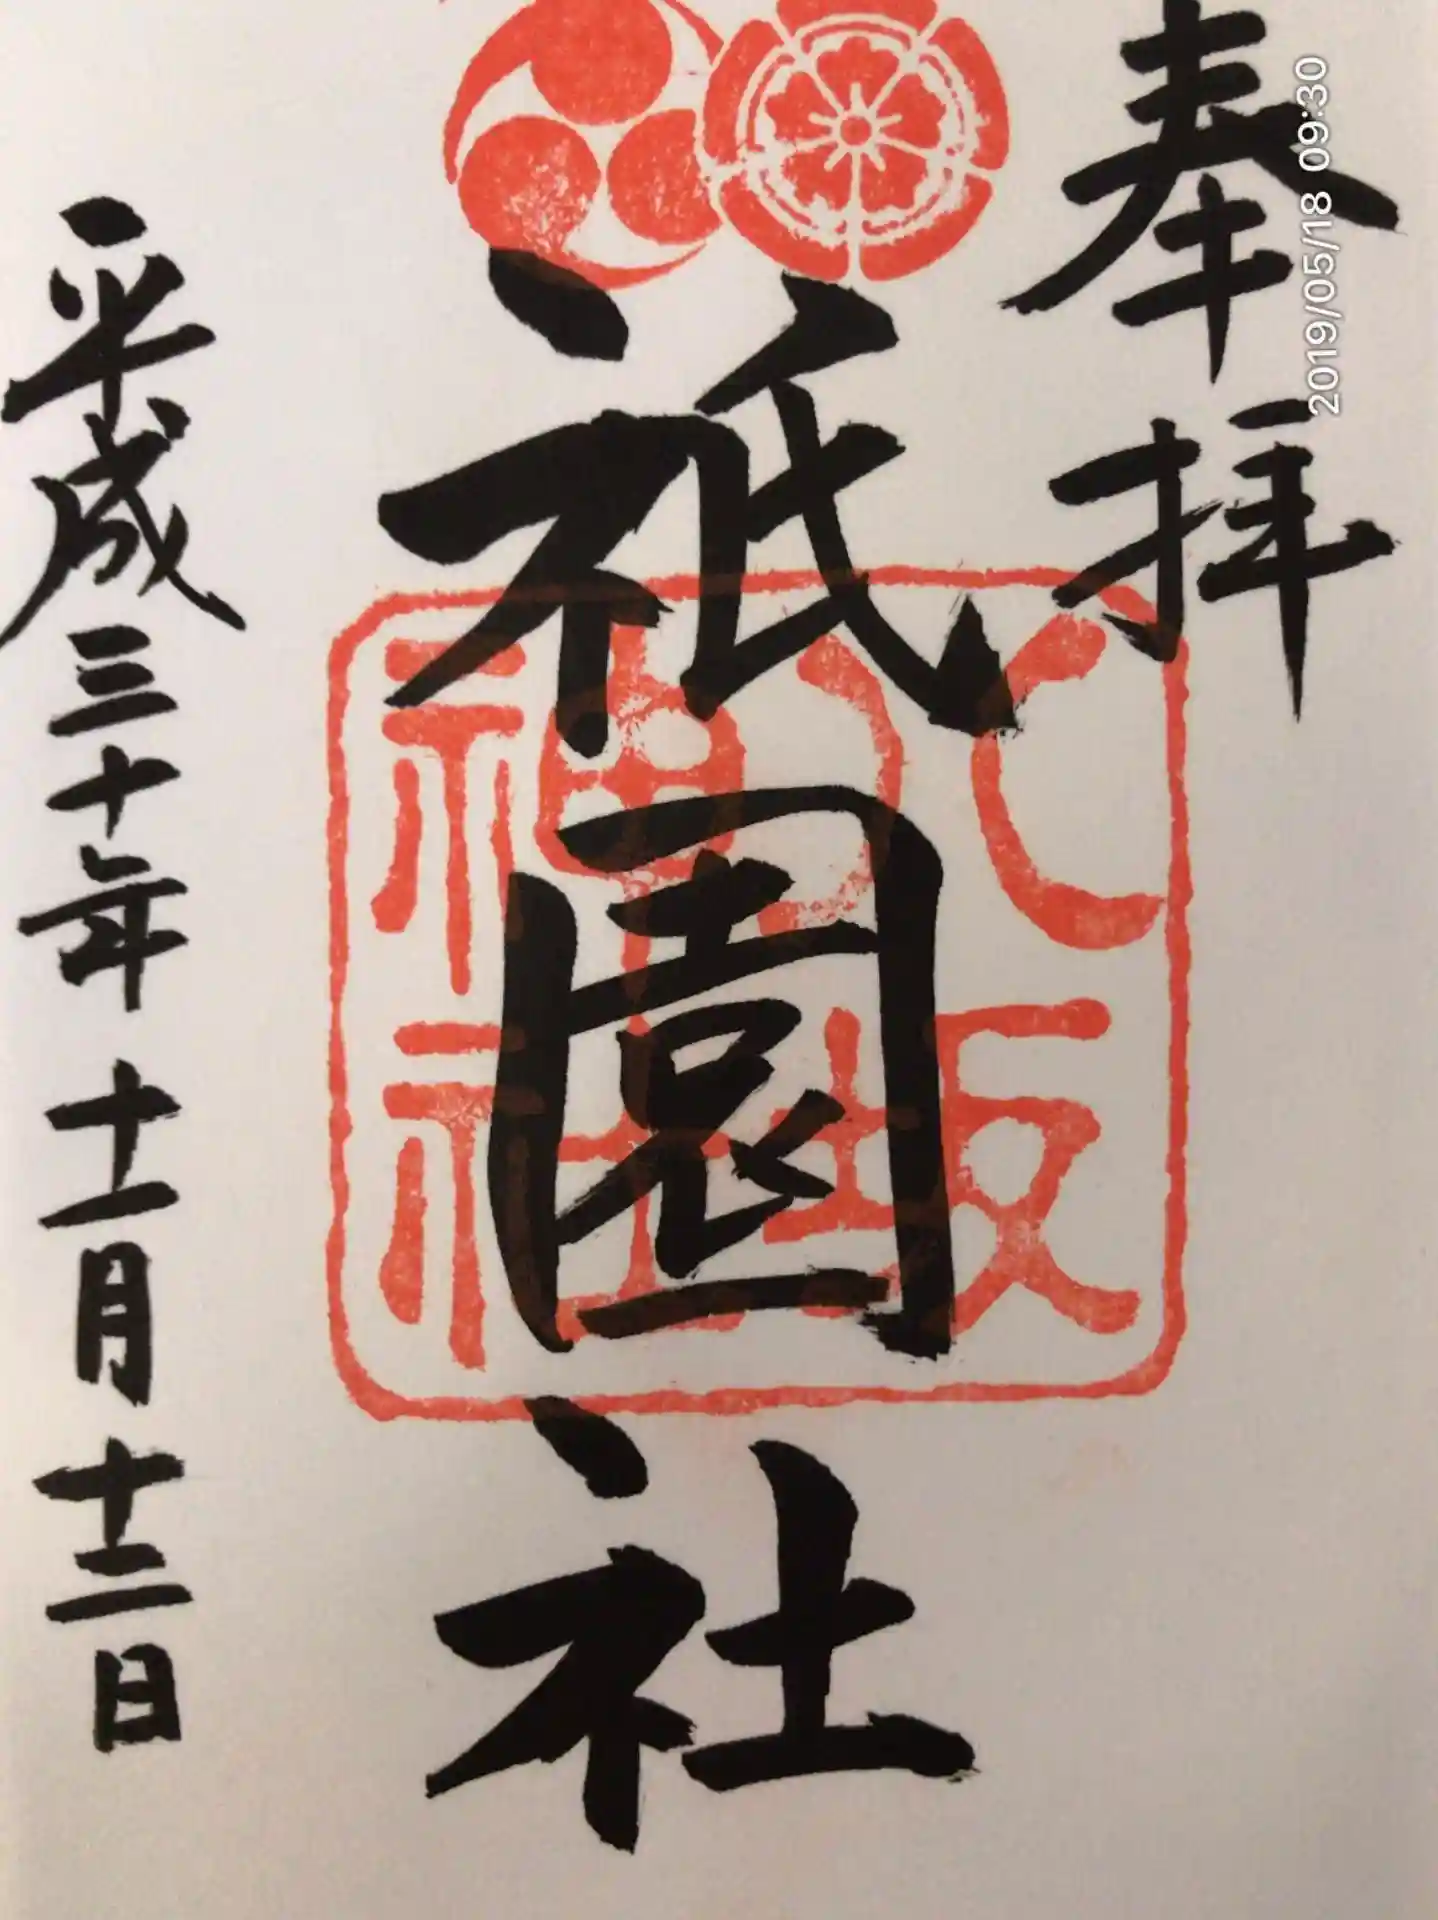 奉拝
祇園社
八坂
神社
平成三十年十一月十二日
2019/05/18 09:30